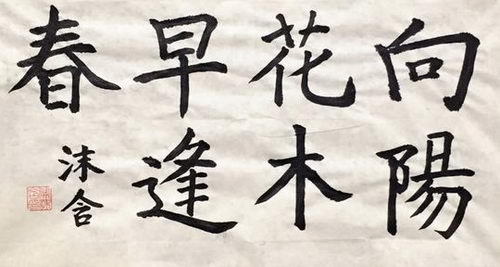 向陽
花木
早逢
春
沫含